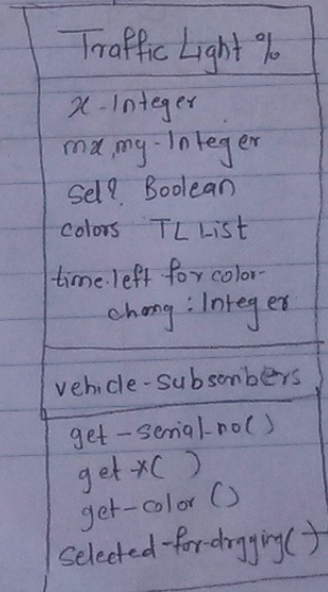 Traffic Light %
x-Integer
mx,my-Integer
Sel? Boolean
colors TL List
time.left for color-
chang: Integer
vehicle-subscribers
get-serial-no()
get-x( )
get-color ()
selected-for-drgging()